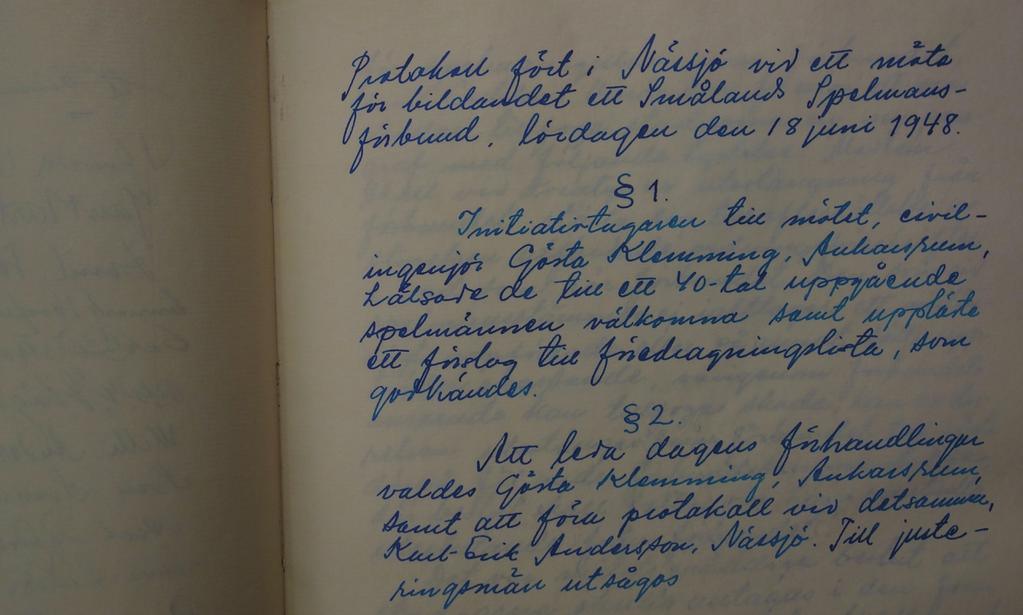 Protokoll fört i Nässjö vid ett möte
för bildandet ett Smålands Spelmans-
förbund, lördagen den 18 juni 1948.
§ 1.
Initiativtagaren till mötet, civil-
ingenjör Gösta Klemming, Ankarsrum,
hälsade de till ett 40-tal uppgående
spelmännen välkomna samt uppläste
ett förslag till föredragningslista, som
godkändes.
§ 2.
Att leda dagens förhandlingar
valdes Gösta Klemming, Ankarsrum,
samt att föra protokoll vid detsamma,
Karl-Erik Andersson, Nässjö. Till juste-
ringsmän utsågos